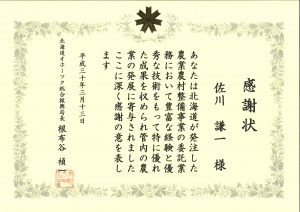 感謝状
佐川 謙一 様
あなたは北海道が発注した
農業農村整備事業の委託業
務において豊富な経験と優
秀な技術をもって特に優れ
た成果を収められ管内の農
業の発展に寄与されました
ここに深く感謝の意を表し
ます
平成三十年三月十三日
北海道オホーツク総合振興局長 根布谷 禎